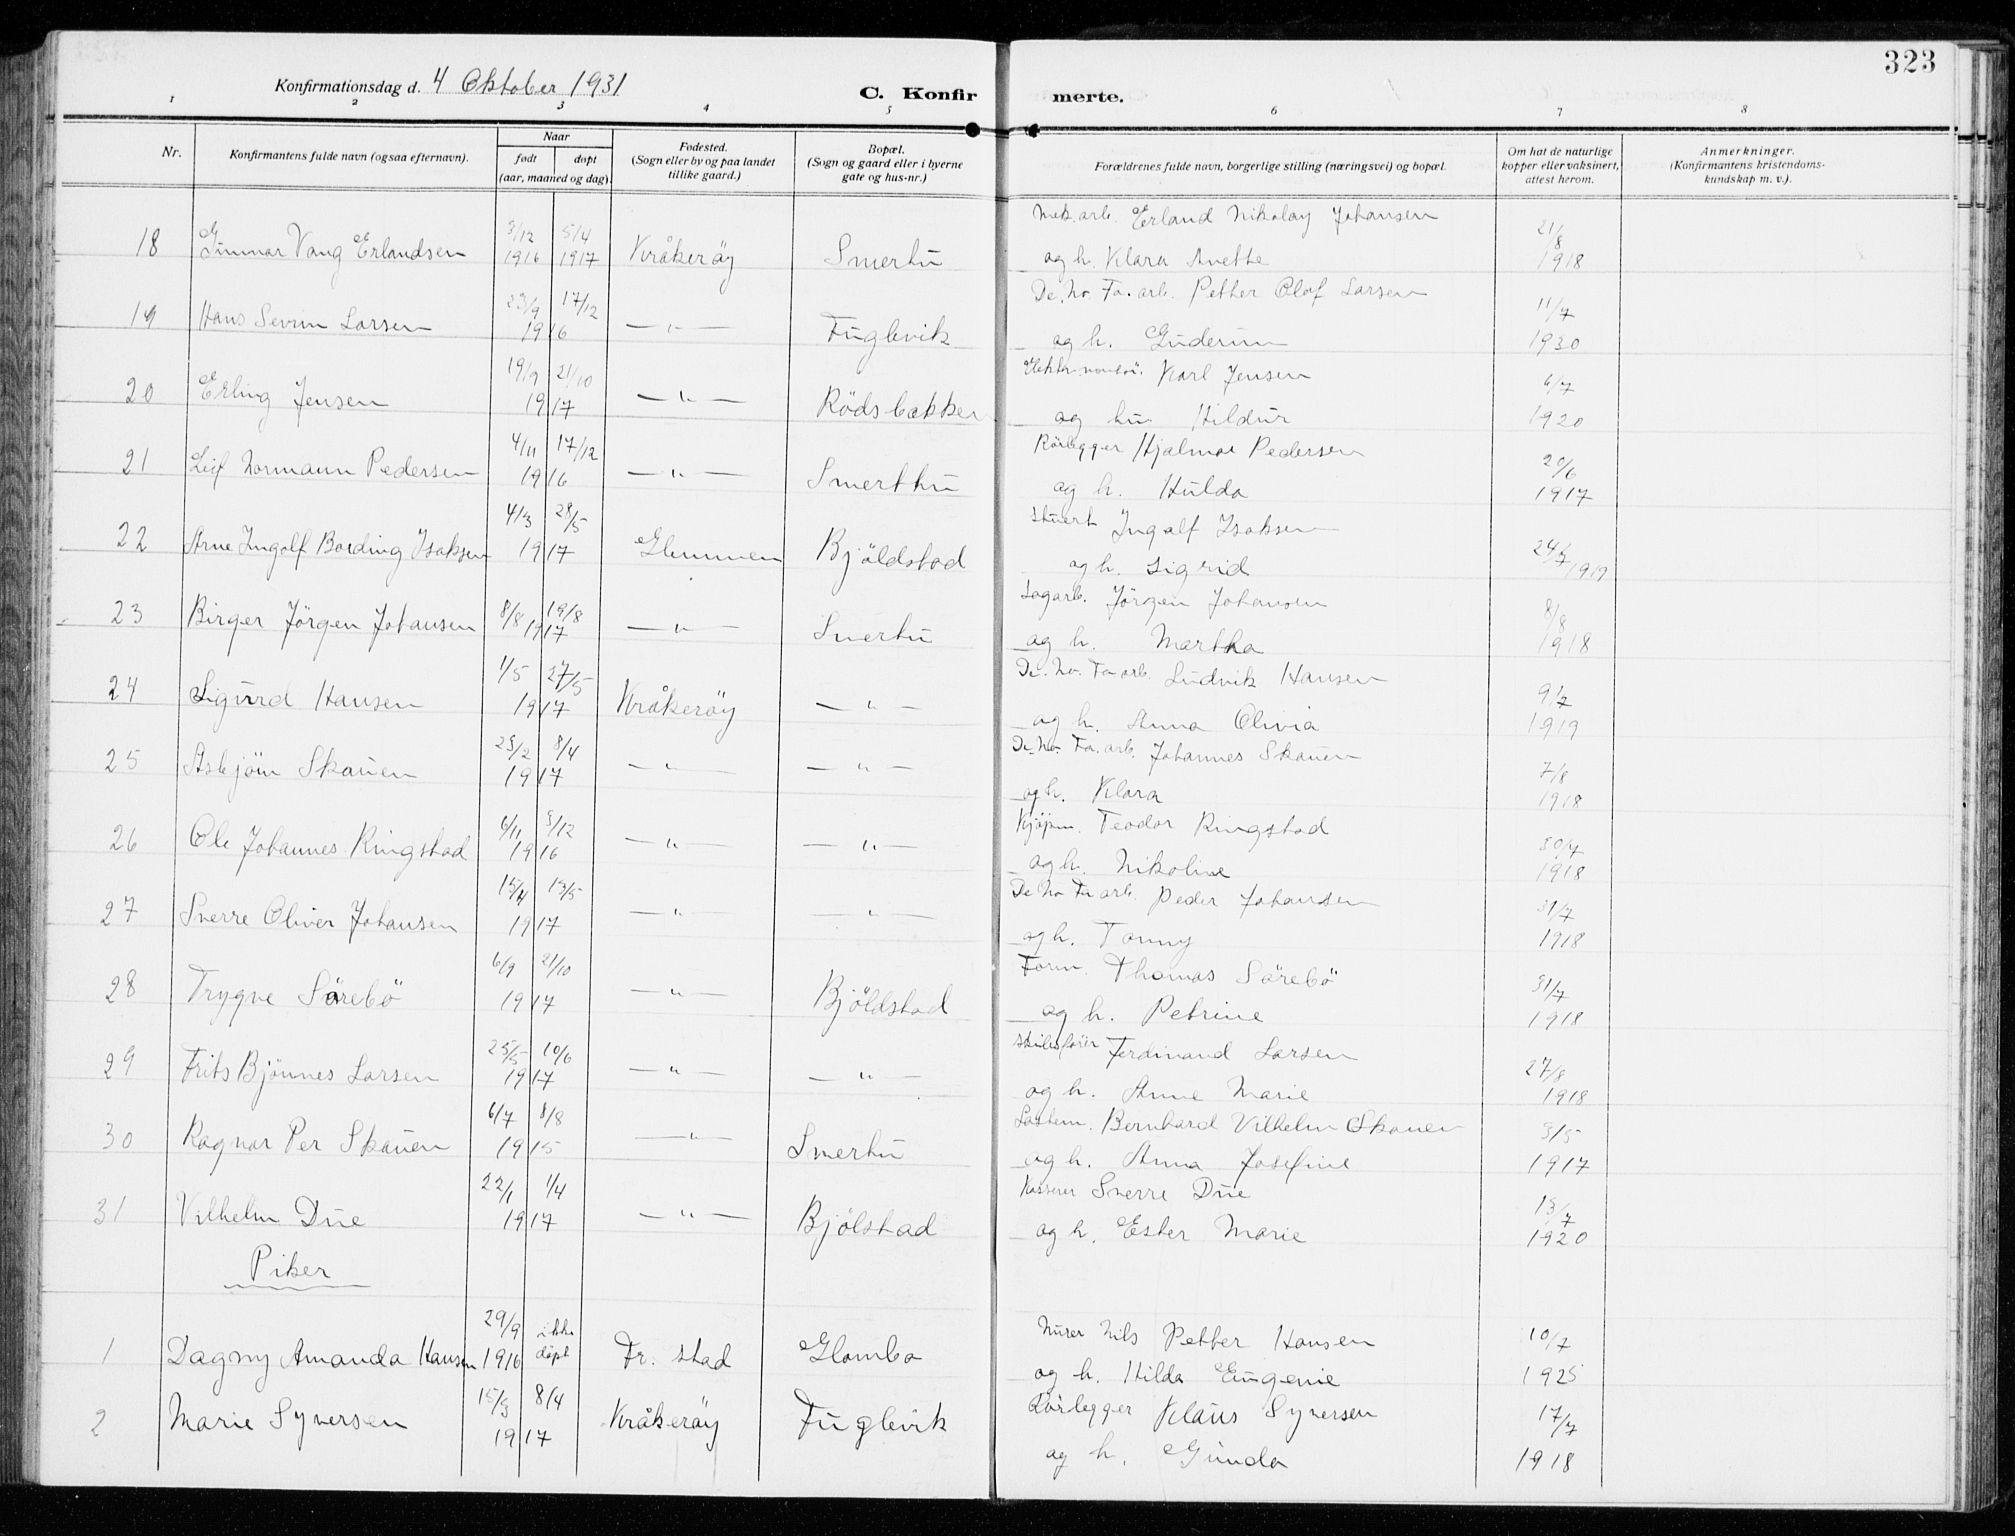 323
Konfirmationsdag d. 4 Oktober 1931
C. Konfir merte.
1 2 3 4 5 6 7 8
Nr.
Konfirmantens fulde navn (ogsaa efternavn).
Naar
født døpt
(aar, maaned og dag).
Fødested.
(Sogn eller by og paa landet
tillike gaard.)
Bopæl.
(Sogn og gaard eller i byerne
gate og hus-nr.)
Forældrenes fulde navn, borgerlige stilling (næringsvei) og bopæl.
Om hat de naturlige
kopper eller vaksinert,
attest herom.
Anmerkninger.
(Konfirmantens kristendoms-
kundskap m. v.).
18 Gunnar Vang Erlandsen 3/12 1916 5/4 1917 Kråkeröy Smertu Mek. arb. Erland Nikolay Johansen
og h. Klara Anette 21/8 1918
19 Hans Sevrin Larsen 23/9 17/12 1916 — " — Fuglevik De. No. Fa. arb. Petter Olaf Larsen
og h. Guderun 11/7 1930
20 Erling Jensen 19/9 21/10 1917 — " — Rödsbakken Elektr. montör. Karl Jensen
og hu Hildur 6/7 1920
21 Leif Normann Pedersen 4/11 17/12 1916 — " — Smerthu Rörlegger Hjalmar Pedersen
og h. Hulda 20/6 1917
22 Arne Ingolf Bording Isaksen 4/3 28/5 1917 Glemmen Bjöldstad Stuert Ingolf Isaksen
og h. Sigrid 24/7 1919
23 Birger Jörgen Johansen 8/8 19/8 1917 — " — Smertu Sagarb. Jörgen Johansen
og h. Martha 8/8 1918
24 Sigurd Hansen 1/5 27/5 1917 Kråkeröy — " — De. No. Fa arb. Ludvik Hansen
og h. Anna Olivia 9/7 1919
25 Asbjörn Skauen 25/2 8/4 1917 — " — — " — De. No. Fa. arb. Johannes Skauen
og h. Klara 7/8 1918
26 Ole Johannes Ringstad 6/11 3/12 1916 — " — — " — Kjöpm. Teodor Ringstad
og h. Nikoline 30/7 1918
27 Sverre Oliver Johansen 15/4 13/5 1917 — " — — " — De No Fa arb. Peder Johansen
og h. Tonny 31/7 1918
28 Trygve Sörebö 6/9 21/10 1917 — " — Bjöldstad Form. Thomas Sörebö
og h. Petrine 31/7 1918
29 Frits Bjönnes Larsen 25/5 10/6 1917 — " — — " — Ferdinand Larsen
og h. Anne Marie 27/8 1918
30 Ragnar Per Skauen 6/7 8/8 1915 — " — Smertu Lastem. Bernhard Vilhelm Skauen
og h. Anna Josefine 3/5 1917
31 Vilhelm Due 22/1 1/4 1917 — " — Bjölstad Kasserer Sverre Due
og h. Ester Marie 13/7 1920
Piker
1 Dagny Amanda Hansen 29/9 1916 ikke döpt Fr. stad Glombo Murer Nils Petter Hansen
og h. Hilda Eugenie 10/7 1925
2 Marie Syversen 15/3 8/4 1917 Kråkeröy Fuglevik Rörlegger Klaus Syversen
og h. Gunda 17/7 1918